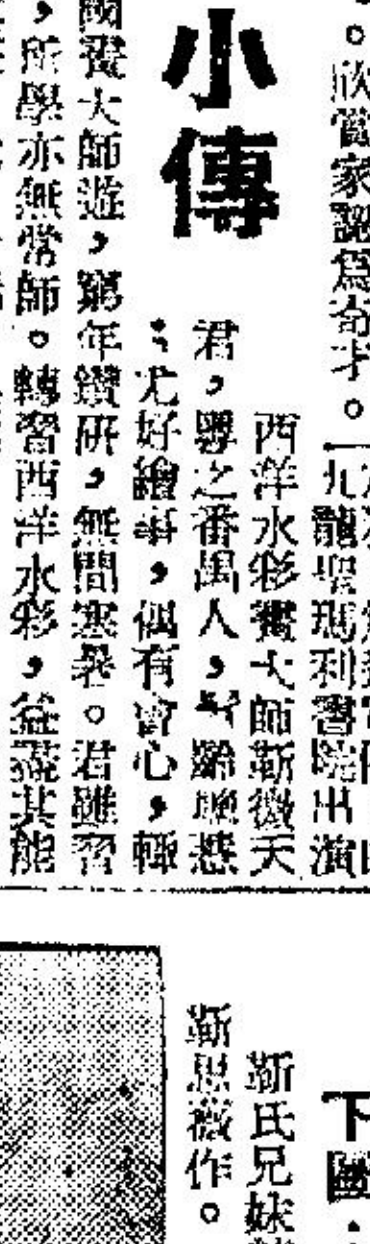 。欣賞家認爲奇才。
九龍聖瑪利書院出演
小傳
西洋水彩畫大師靳微天
君，粵之番禺人，髫齡穎慧
；尤好繪事，偶有會心，輒
國畫大師遊，窮年鑽研，無間寒暑。君雖習
，所學亦無常師。轉習西洋水彩，益盡其能
下國
靳氏兄妹
靳思薇作。